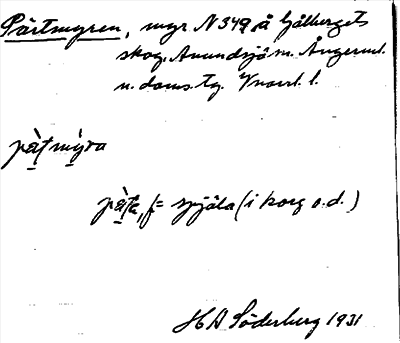 Pärtmyren, myr N 349, å Gålbergets
skog, Anundsjö sn. Ångerml.
n. doms. tg. Vnorrl. l.
pàṭ mỳra
pàṭa, f = spjäla (i korg o.d.)
H A Söderberg 1931